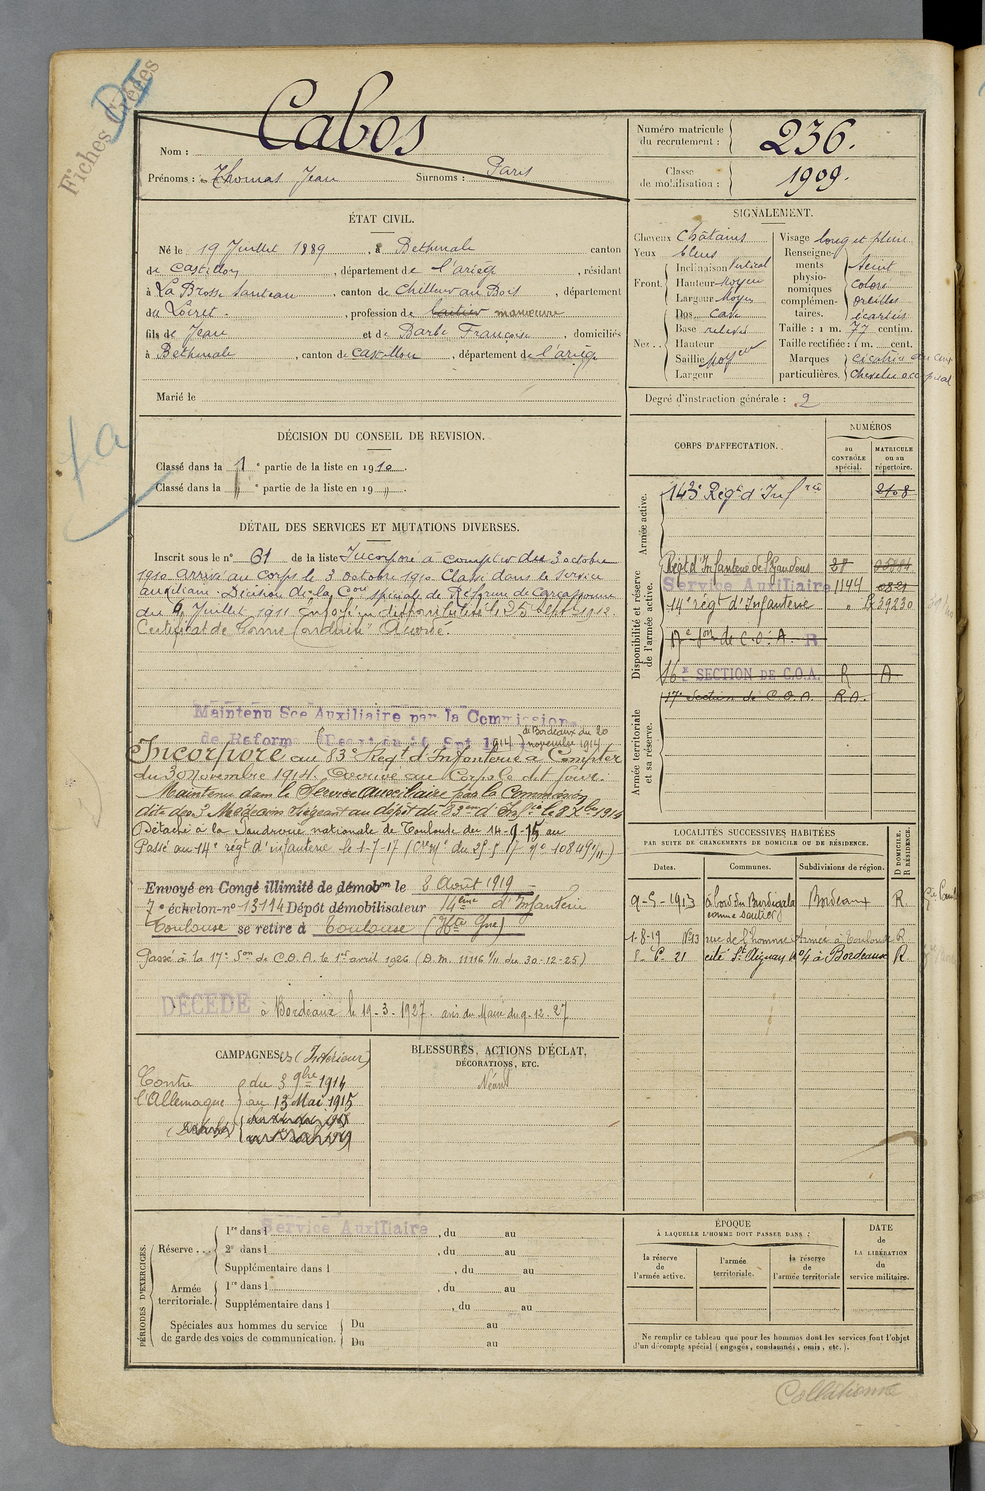 Fiches Créées
Nom : Cabos
Prénoms : Thomas Jean Surnoms : Paris
Numéro matricule du recrutement : 236.
Classe de mobilisation : 1909.
ÉTAT CIVIL.
Né le 19 Juillet 1889, à Bethmale canton
de Castillon, département de l'ariège, résidant
à La Brosse Santeau, canton de Chilleurs au Bois, département
du Loiret., profession de manœuvre
fils de Jean et de Barbe Françoise, domiciliés
à Bethmale, canton de Castillon, département de l'ariège
Marié le
SIGNALEMENT.
Cheveux Châtains
Yeux bleus
Front. Inclinaison Vertical
Hauteur Moyen
Largeur Moyen
Nez .. Dos Cave
Base relevée
Hauteur
Saillie Moyen
Largeur
Visage long et plein
Renseignements physionomiques complémentaires. teint
coloré
oreilles
écartées
Taille : 1 m. 77 centim.
Taille rectifiée : 1 m. cent.
Marques particulières. Cicatrice cuir
chevelu occipital
Degré d'instruction générale : 2
DÉCISION DU CONSEIL DE REVISION.
Classé dans la 1e partie de la liste en 1910.
Classé dans la " e partie de la liste en 19 ".
DÉTAIL DES SERVICES ET MUTATIONS DIVERSES.
Inscrit sous le n° 61 de la liste Incorporé à compter du 3 octobre
1910 arrivé au corps le 3 octobre 1910 Classé dans le service
auxiliaire. Décision de la Con spéciale de Réforme de Carcassonne
du 6 Juillet 1911. Envoyé en disponibilité le 25 Sept 1912.
Certificat de bonne conduite Accordé.
Maintenu Sce Auxiliaire par la Commission
de Réforme de Bordeaux du 20 novembre 1914
Incorporé au 83e Régt d'Infanterie à Compter
du 30 Novembre 1914. Arrivé au Corps le dit jour.
Maintenu dans le Service auxiliaire par la Commission
dite des 3 Médecins siégeant au dépôt du 83ème d'Infie le 8 Xbre 1914
Détaché à la Poudrerie nationale de Toulouse du 14-9-15 au
Passé au 14e régt d'infanterie le 1-7-17
Envoyé en Congé illimité de démobon le 8 Août 1919
7e échelon-n° 13114 Dépôt démobilisateur 14ème d'Infanterie
Toulouse se retire à Toulouse (Hte Gne)
Passé à la 17e Son de C.O.A. le 1er avril 1926 (D.M. 11116 1/11 du 30-12-25)
DÉCÉDÉ à Bordeaux le 19-3-1927. avis du Maire du 9-12-27
CORPS D'AFFECTATION.
NUMÉROS
au CONTRÔLE spécial.
MATRICULE ou au répertoire.
Armée active.
143e Régt d'Infrie 2108
Disponibilité et réserve de l'armée active.
Régt d'Infanterie de St Gaudens 28
Service Auxiliaire 1144 0821
14e régt d'Infanterie " R 39230
17e Son de C.O.A. R
16e SECTION DE C.O.A. R A
17e Section de C.O.A. R.A.
Armée territoriale et sa réserve.
LOCALITÉS SUCCESSIVES HABITÉES
PAR SUITE DE CHANGEMENTS DE DOMICILE OU DE RÉSIDENCE.
Dates. Communes. Subdivisions de région. D. DOMICILE. R. RÉSIDENCE.
9-5-1913 à bord du Burdigala Bordeaux R.
comme soutier
1-8-19 N° 13 rue de l'homme Armé à Toulouse R
cité St Aignan à Bordeaux R
CAMPAGNES (Intérieur)
Contre l'Allemagne
du 3 9bre 1914
au 13 Mai 1915
BLESSURES, ACTIONS D'ÉCLAT,
DÉCORATIONS, ETC.
Néant
PÉRIODES D'EXERCICES.
Réserve ... 1re dans l Service Auxiliaire, du au
2e dans l , du au
Supplémentaire dans l , du au
Armée territoriale. 1re dans l , du au
Supplémentaire dans l , du au
Spéciales aux hommes du service de garde des voies de communication. Du au
Du au
ÉPOQUE
À LAQUELLE L'HOMME DOIT PASSER DANS :
la réserve de l'armée active.
l'armée territoriale.
la réserve de l'armée territoriale
DATE DE LA LIBÉRATION du service militaire.
Ne remplir ce tableau que pour les hommes dont les services font l'objet
d'un décompte spécial (engagés, condamnés, omis, etc.).
Collationné